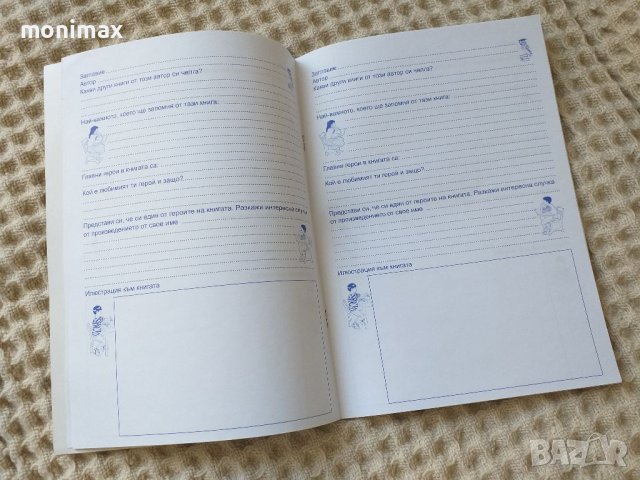 monimax
Заглавие
Автор
Какви други книги от този автор си чел/а?
Най-важното, което ще запомня от тази книга:
Главни герои в книгата са:
Кой е любимият ти герой и защо?
Представи си, че си един от героите на книгата. Разкажи интересна случка
от произведението от свое име
Илюстрация към книгата
Заглавие
Автор
Какви други книги от този автор си чел/а?
Най-важното, което ще запомня от тази книга:
Главни герои в книгата са:
Кой е любимият ти герой и защо?
Представи си, че си един от героите на книгата. Разкажи интересна случка
от произведението от свое име
Илюстрация към книгата
BAZAR